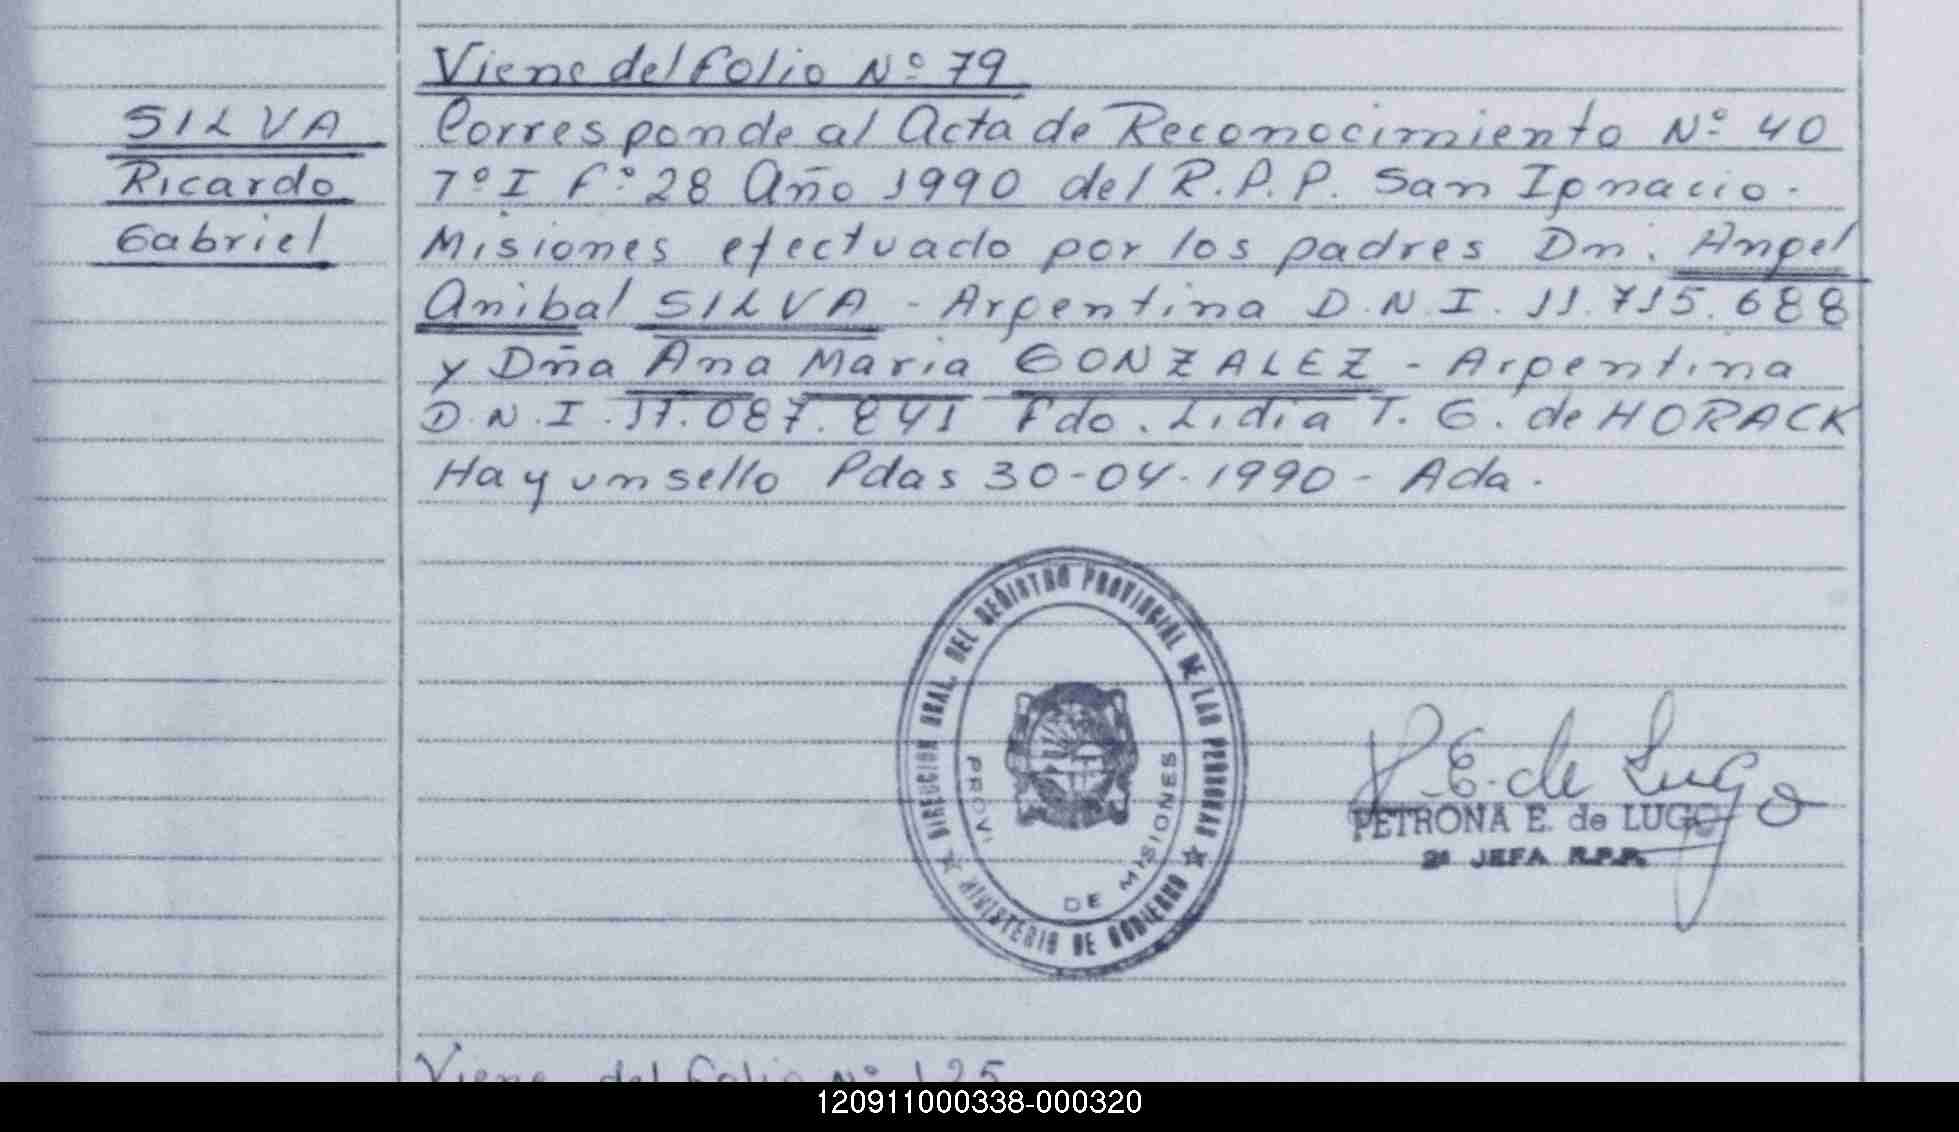 Viene del folio Nº 79
SILVA
Ricardo
Gabriel
Corresponde al Acta de Reconocimiento Nº 40
Tº I Fº 28 Año 1990 del R.P.P. San Ignacio -
Misiones efectuado por los padres Dn. Angel
Anibal SILVA - Argentina D.N.I. 11.715.688
y Dña Ana Maria GONZALEZ - Argentina
D.N.I. 17.087.841 Fdo. Lidia T. G. de HORACK
Hay un sello Pdas 30-04-1990 - Ada.
DIRECCION GRAL. DEL REGISTRO PROVINCIAL DE LAS PERSONAS
MINISTERIO DE GOBIERNO
PROV.
DE MISIONES
P. E. de Lugo
PETRONA E. de LUGO
2ª JEFA R.P.P.
Viene del folio Nº 125
120911000338-000320